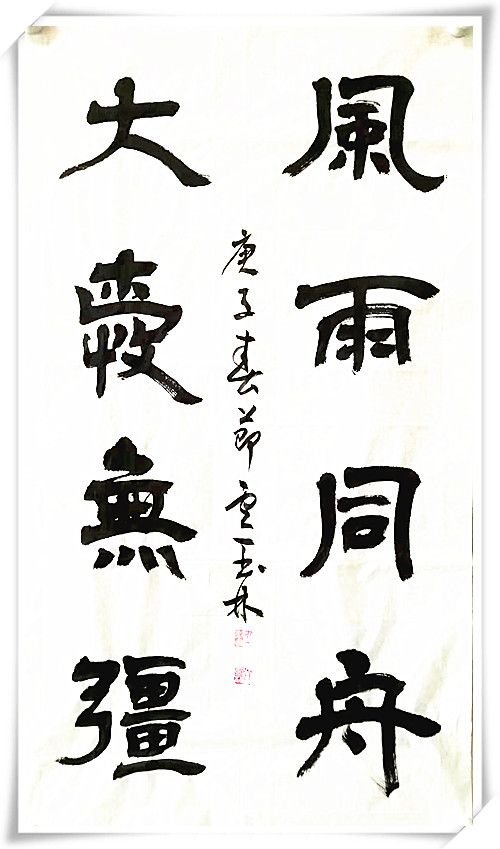 風雨同舟
大愛無彊
庚子春節玉林